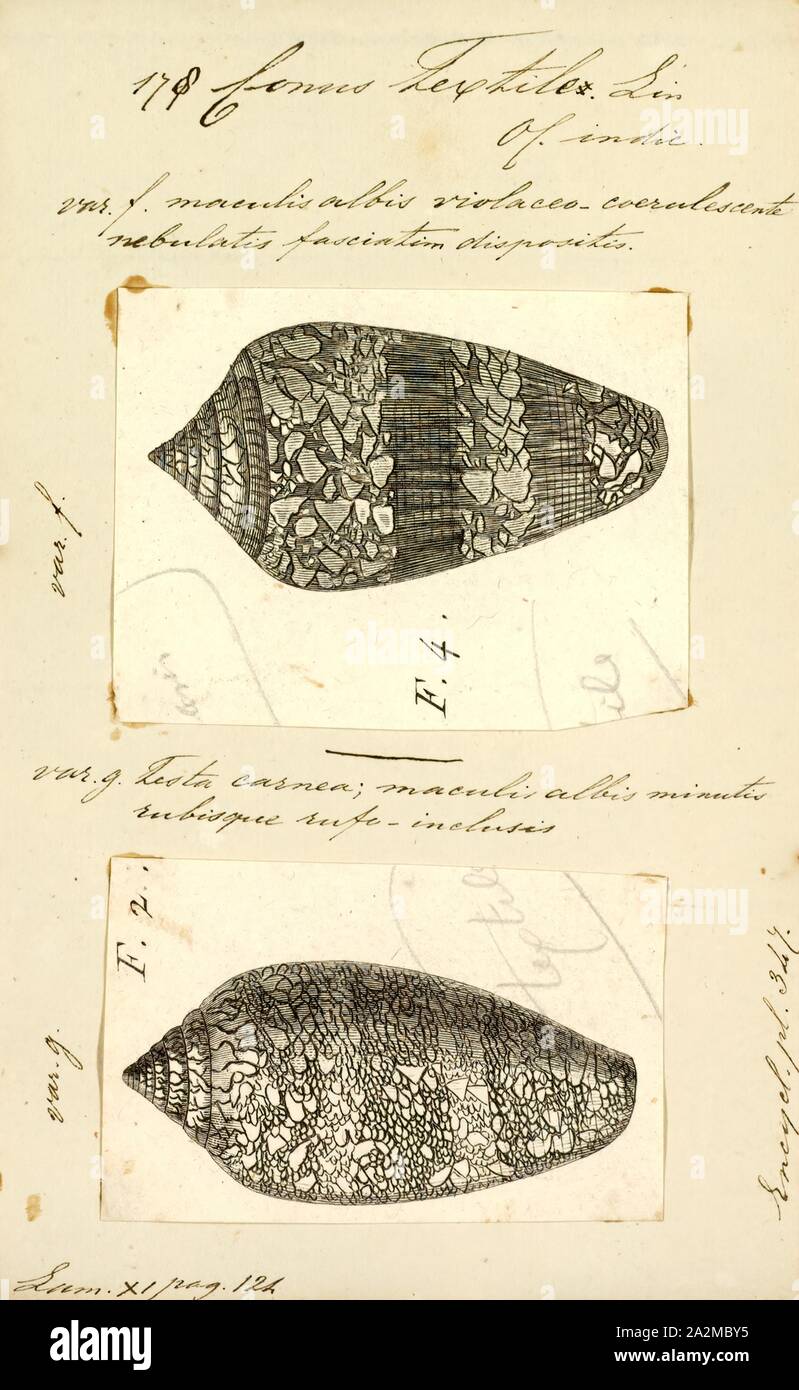 178 Conus Textile. Lin
Oc. indic.
var. f. maculis albis violaceo-coerulescente
nebulatis fasciatim dispositis.
var. f.
F. 4.
var. g. Testa carnea; maculis albis minutis
rubisque rufo-inclusis
F. 2.
textile
var. g.
Encycl. pl. 347.
Lam. XI pag. 124
alamy
Image ID: 2A2MBY5
www.alamy.com